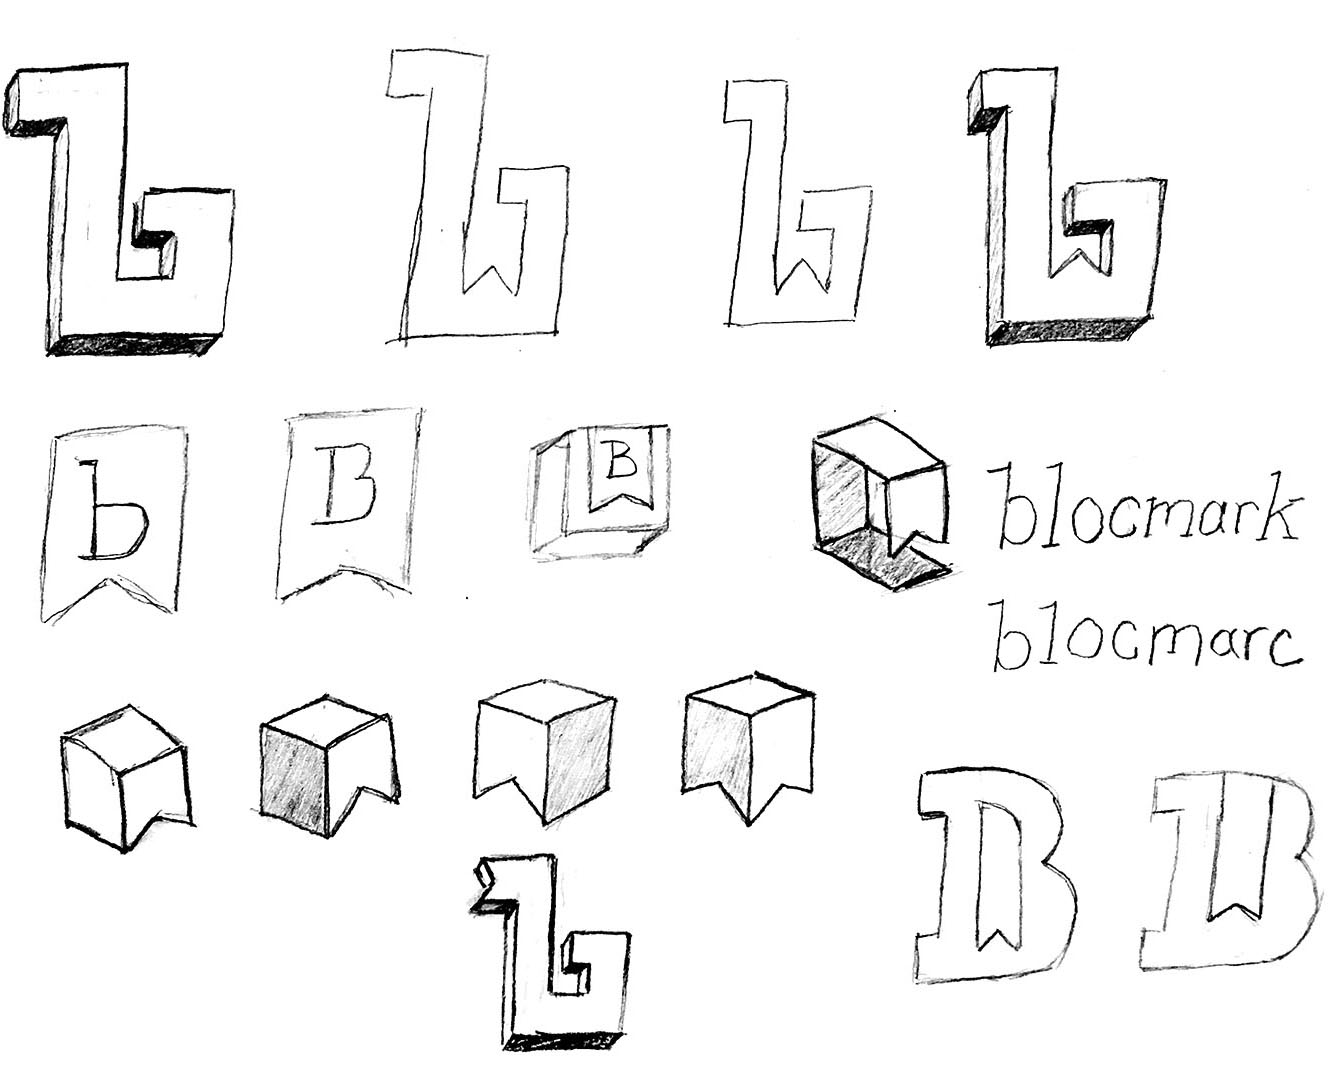 b b b b
b B B
blocmark
blocmarc
b B B